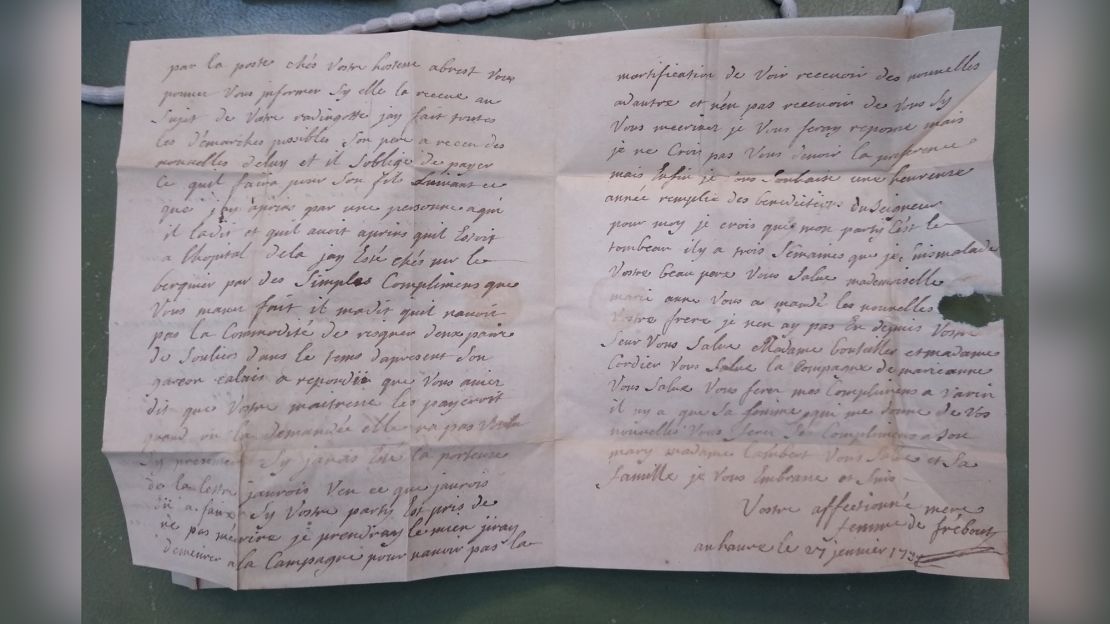 par la poste chés Vostre hostesse abrest vous
pouvez Vous jnformer Sy elle la receue au
Sujet de Vostre radingotte jay fait toutes
les démarches posibles Son pere a receu des
nouvelles deluy et il Soblige de payer
Ce quil faira pour Son fils Suivant ce
que jay apris par une personne aqui
il ladit et quil avoit apris quil Estoit
a lhopital dela jay Esté chés mr le
berquier par des Simples Complimens que
Vous mavez fait il madit quil navoit
pas la Commodité de risquer deux paire
de Souliers dans le tems dapresent Son
garcon calais a repondü que vous aviez
dit que Vostre maitresse les payeroit
quand on la demandée elle na pas
Sy presenter Sy javois Esté la porteuse
de la lettre jaurois Veu ce que jaurois
Sy Vostre party est pris de
ne pas mécrire je prendray le mien jjray
demeurer a la Campagne pour navoir pas la
mortification de Voir recevoir des nouvelles
adautre et nen pas recevoir de Vous Sy
Vous mecrivez je Vous feray reponse mais
je ne Crois pas Vous devoir la preference
mais Enfin je vous Souhaite une heureuse
année remplie des benedictions du Seigneur
pour moy je crois que mon party Est le
tombeau il y a trois Semaines que je suis malade
Vostre beau pere Vous Salue mademoiselle
marie anne Vous a mandé les nouvelles
Vostre frere je nen ay pas Eu depuis Vostre
Seur Vous Salue Madame bouteiller et madame
Cordier Vous Salue la Compagne de marianne
Vous Salue Vous ferez mes Complimens a Varin
il ny a que Sa femme qui me donne de Vos
nouvelles Vous ferez Ses Complimens a Son
mary madame Lambert Vous Salue et Sa
famille je Vous Embrasse et Suis
Vostre affectionné mere
femme de frébourg
au havre le 27 jenvier